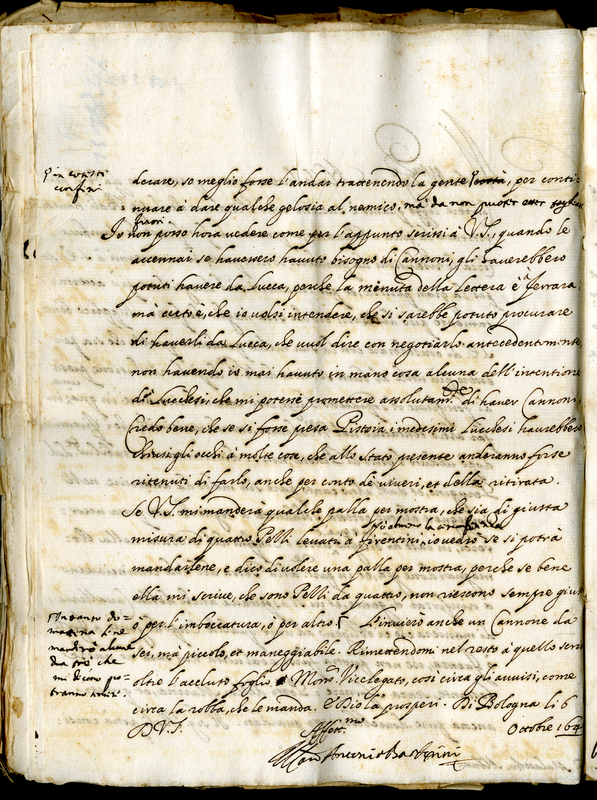 p in cotesti
confini
derare, se meglio fosse l'andar trattenendo la gente costà, per conti-
nuare à dare qualche gelosia al nemico, mà da non poter esser
fuori.
Io non posso hora vedere come per l'appunto scrissi à V.S., quando le
accennai se havessero havuto bisogno di Cannoni, gli haverebbero
potuti havere da Lucca, perche la minuta della lettera è in Ferrara
mà certo è, che io volsi intendere, che si sarebbe potuto procurare
di haverli da Lucca, che vuol dire con negotiarlo antecedentemente,
non havendo io mai havuto in mano cosa alcuna dell'intentione
de Lucchesi, che mi potesse promettere assolutam.te di haver Cannoni.
Credo bene, che se si fosse presa Pistoia i medesimi Lucchesi haurebbero
chiusi gli occhi à molte cose, che allo stato presente anderanno forse
ritenuti di farlo, anche per conto de viveri, et della ritirata.
Se V.S. mi manderà qualche palla per mostra, che sia di giusta
misura di quattro Pezzi levati à fiorentini, io vedrò se si potrà
mandarlene, e dico di volere una palla per mostra, perche se bene
ella mi scrive, che sono Pezzi da quattro, non riescono sempre giusti
ò per l'imboccatura, ò per altro. L'invierò anche un Cannone da
In tanto do-
mattina li ne
manderò alcune
da trè che
mi dicono po-
tranno
sei, mà piccolo, et maneggiabile. Rimettendomi nel resto à quello
oltre l'accluso foglio Mons.r Vicelegato, così circa gli avvisi, come
circa la robba, che le manda. E Dio la prosperi. Di Bologna li 6
D V.S. Ottobre 164
Affett.mo
Il Car. Antonio Barberini